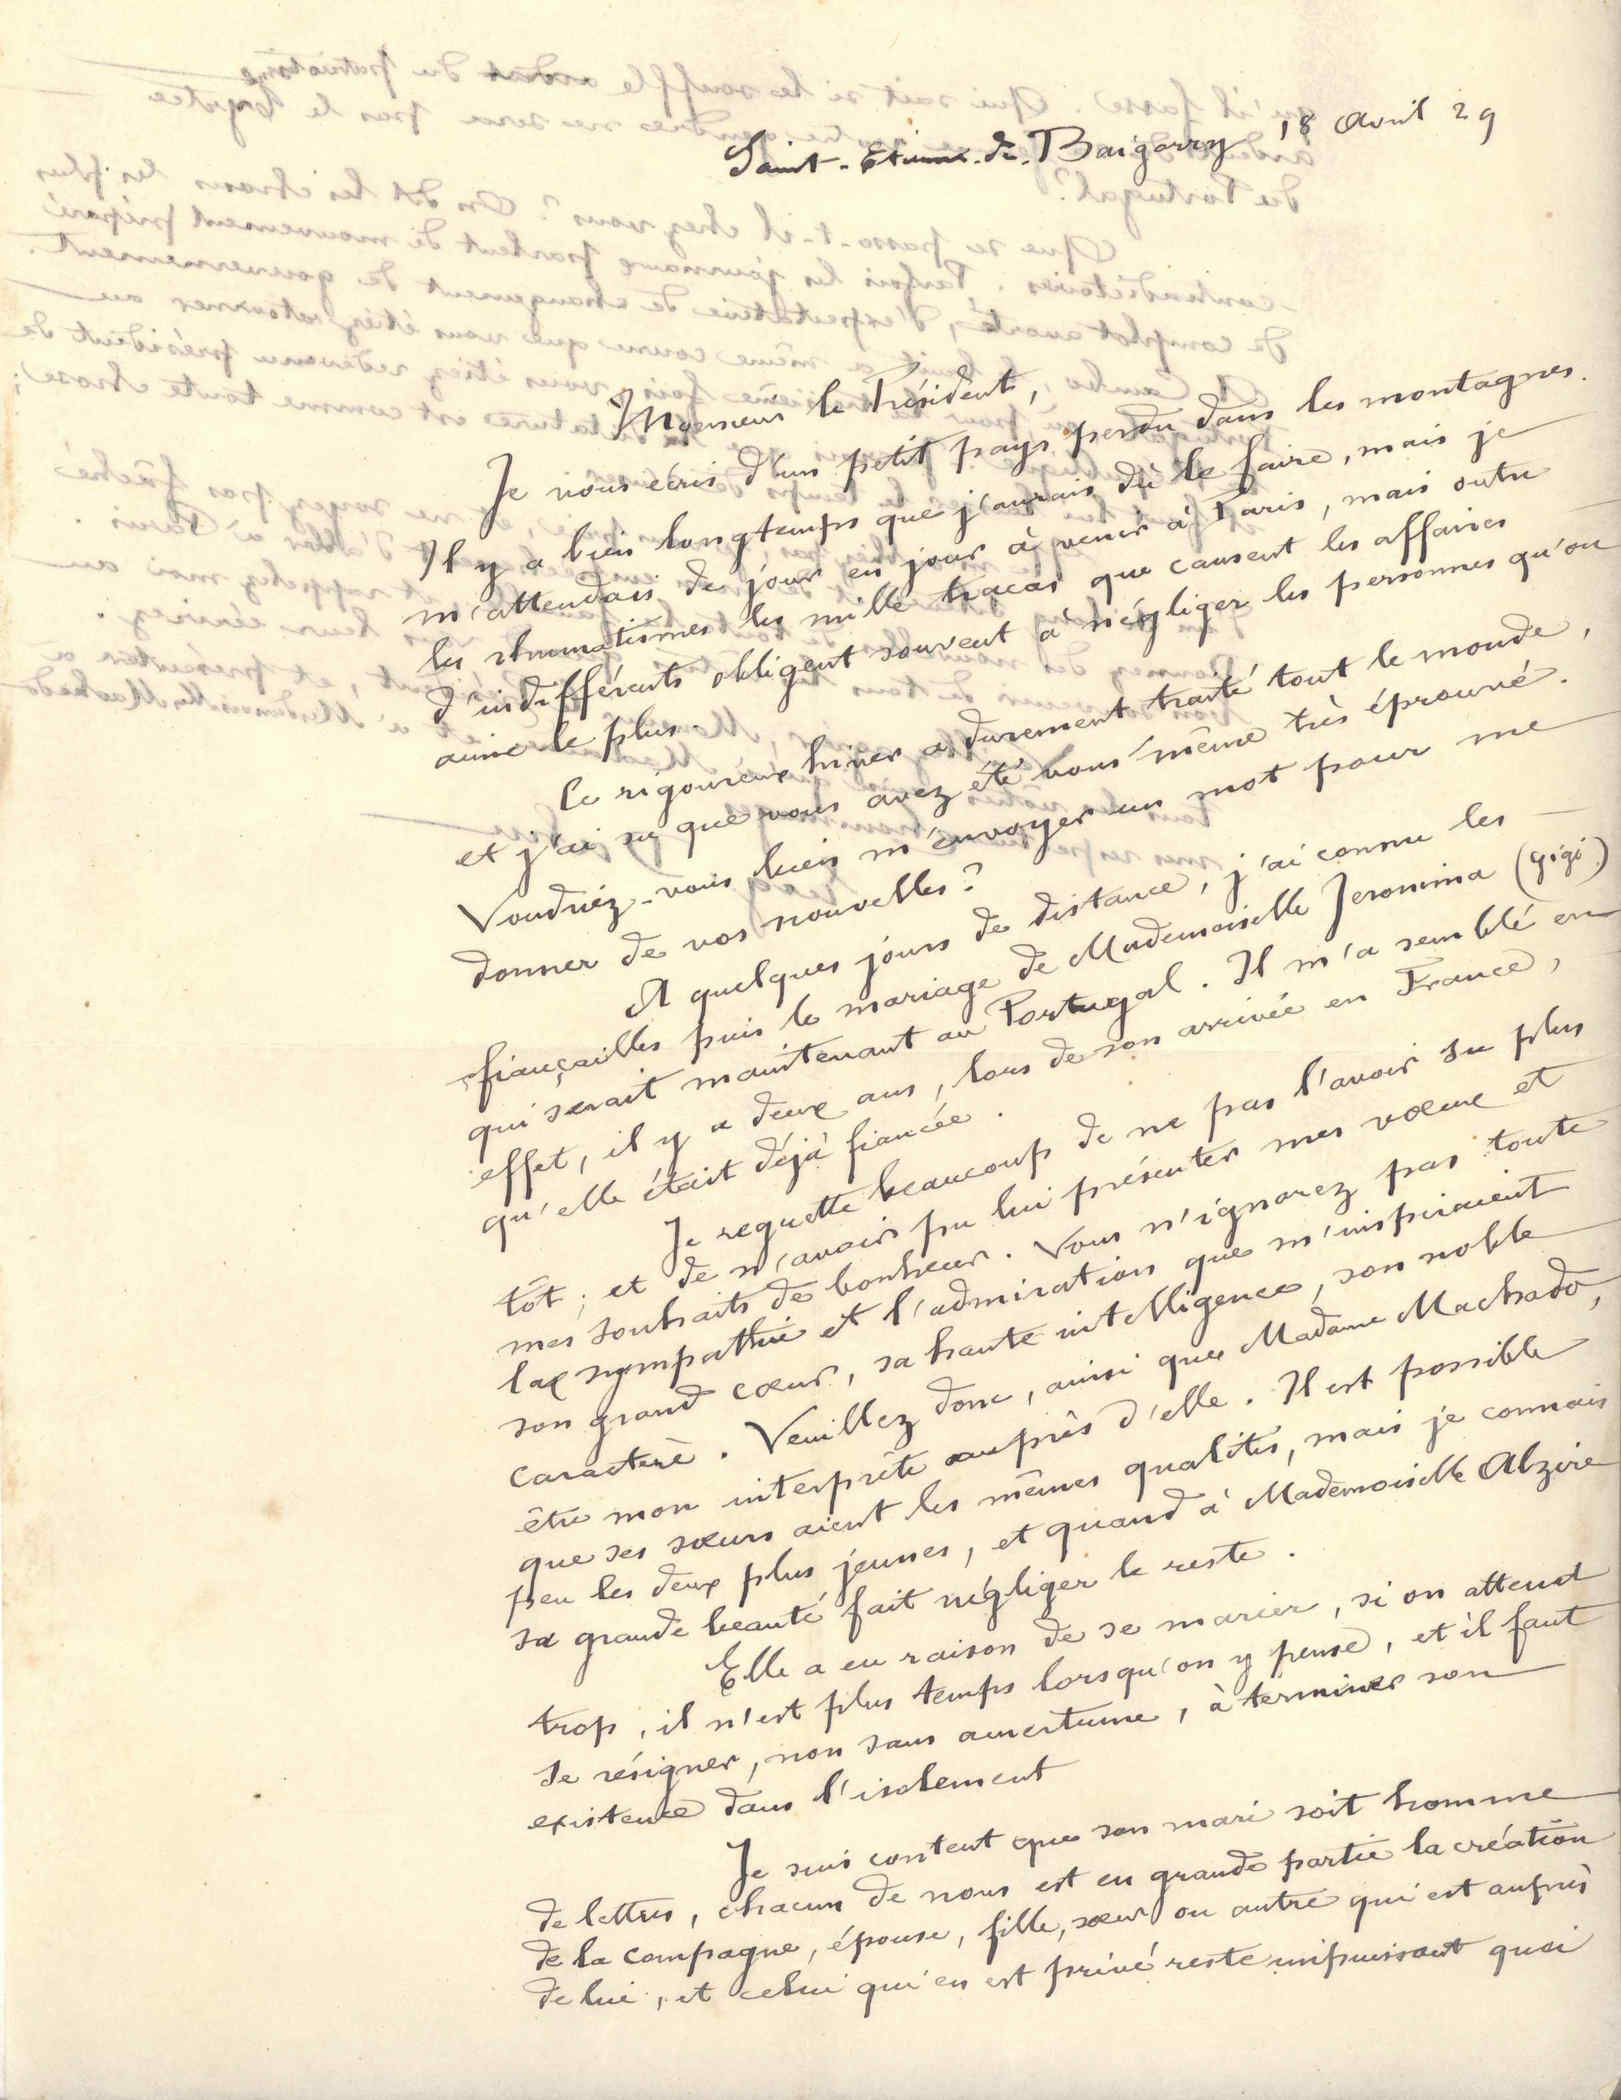 Saint-Etienne-de-Baigorry 18 Avril 29
Monsieur le Président,
Je vous écris d'un petit pays perdu dans les montagnes.
Il y a bien longtemps que j'aurais dû le faire, mais je
m'attendais de jour en jour à venir à Paris, mais outre
les rhumatismes les mille tracas que causent les affaires
d'indifférents obligent souvent à négliger les personnes qu'on
aime le plus.
Ce rigoureux hiver a durement traité tout le monde,
et j'ai su que vous avez été vous même très éprouvé.
Voudriez-vous bien m'envoyer un mot pour me
donner de vos nouvelles?
A quelques jours de distance, j'ai connu les
fiançailles puis le mariage de Mademoiselle Jeronima (gigi)
qui serait maintenant au Portugal. Il m'a semblé en
effet, il y a deux ans, lors de son arrivée en France,
qu'elle était déjà fiancée.
Je regrette beaucoup de ne pas l'avoir su plus
tôt, et de n'avoir pu lui présenter mes vœux et
mes souhaits de bonheur. Vous n'ignorez pas toute
la sympathie et l'admiration que m'inspiraient
son grand cœur, sa haute intelligence, son noble
caractère. Veuillez donc, ainsi que Madame Machado,
être mon interprète auprès d'elle. Il est possible
que ses sœurs aient les mêmes qualités, mais je connais
peu les deux plus jeunes, et quand à Mademoiselle Alzire
sa grande beauté fait négliger le reste.
Elle a eu raison de se marier, si on attend
trop, il n'est plus temps lorsqu'on y pense, et il faut
se résigner, non sans amertume, à terminer son
existence dans l'isolement
Je suis content que son mari soit homme
de lettres, chacun de nous est en grande partie la création
de la compagne, épouse, fille, sœur ou autre qui est auprès
de lui, et celui qui en est privé reste impuissant quoi